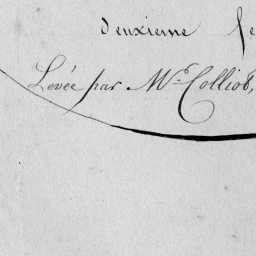 deuxieme fe
Levée par Mr. Colliot,